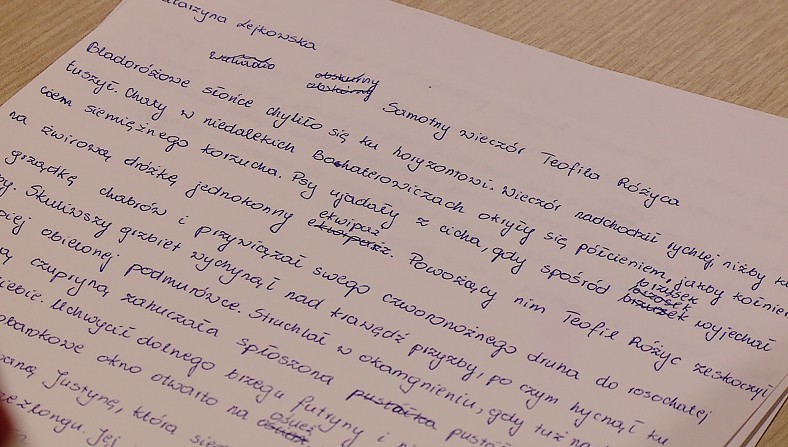 Katarzyna Lejkowska
wahadło obskurny
obskórny
Samotny wieczór Teofila Różyca
Bladoróżowe słońce chyliło się ku horyzontowi. Wieczór nadchodził rychlej niżby
tuszył. Chaty w niedalekich Bohaterowiczach okryły się półcieniem, jakby kołnierzem
siermiężnego korzucha. Psy ujadały z cicha, gdy spośród brzózek
brzosek
brzuzek wyjechał
na żwirową dróżkę jednokonny ekwipaż
ekwiperz. Powożący nim Teofil Różyc zeskoczył
grządkę chabrów i przywiązał swego czworonożnego druha do rosochatej
Skuliwszy grzbiet wychynął nad krawędź przyzby, po czym hycnął ku
obielonej podmurówce. Struchlał w okamgnieniu, gdy tuż
czupryną zahuczała spłoszona pustułka
Uchwycił dolnego brzegu futryny i
okno otwarto na oścież
Justynę, która
Jej